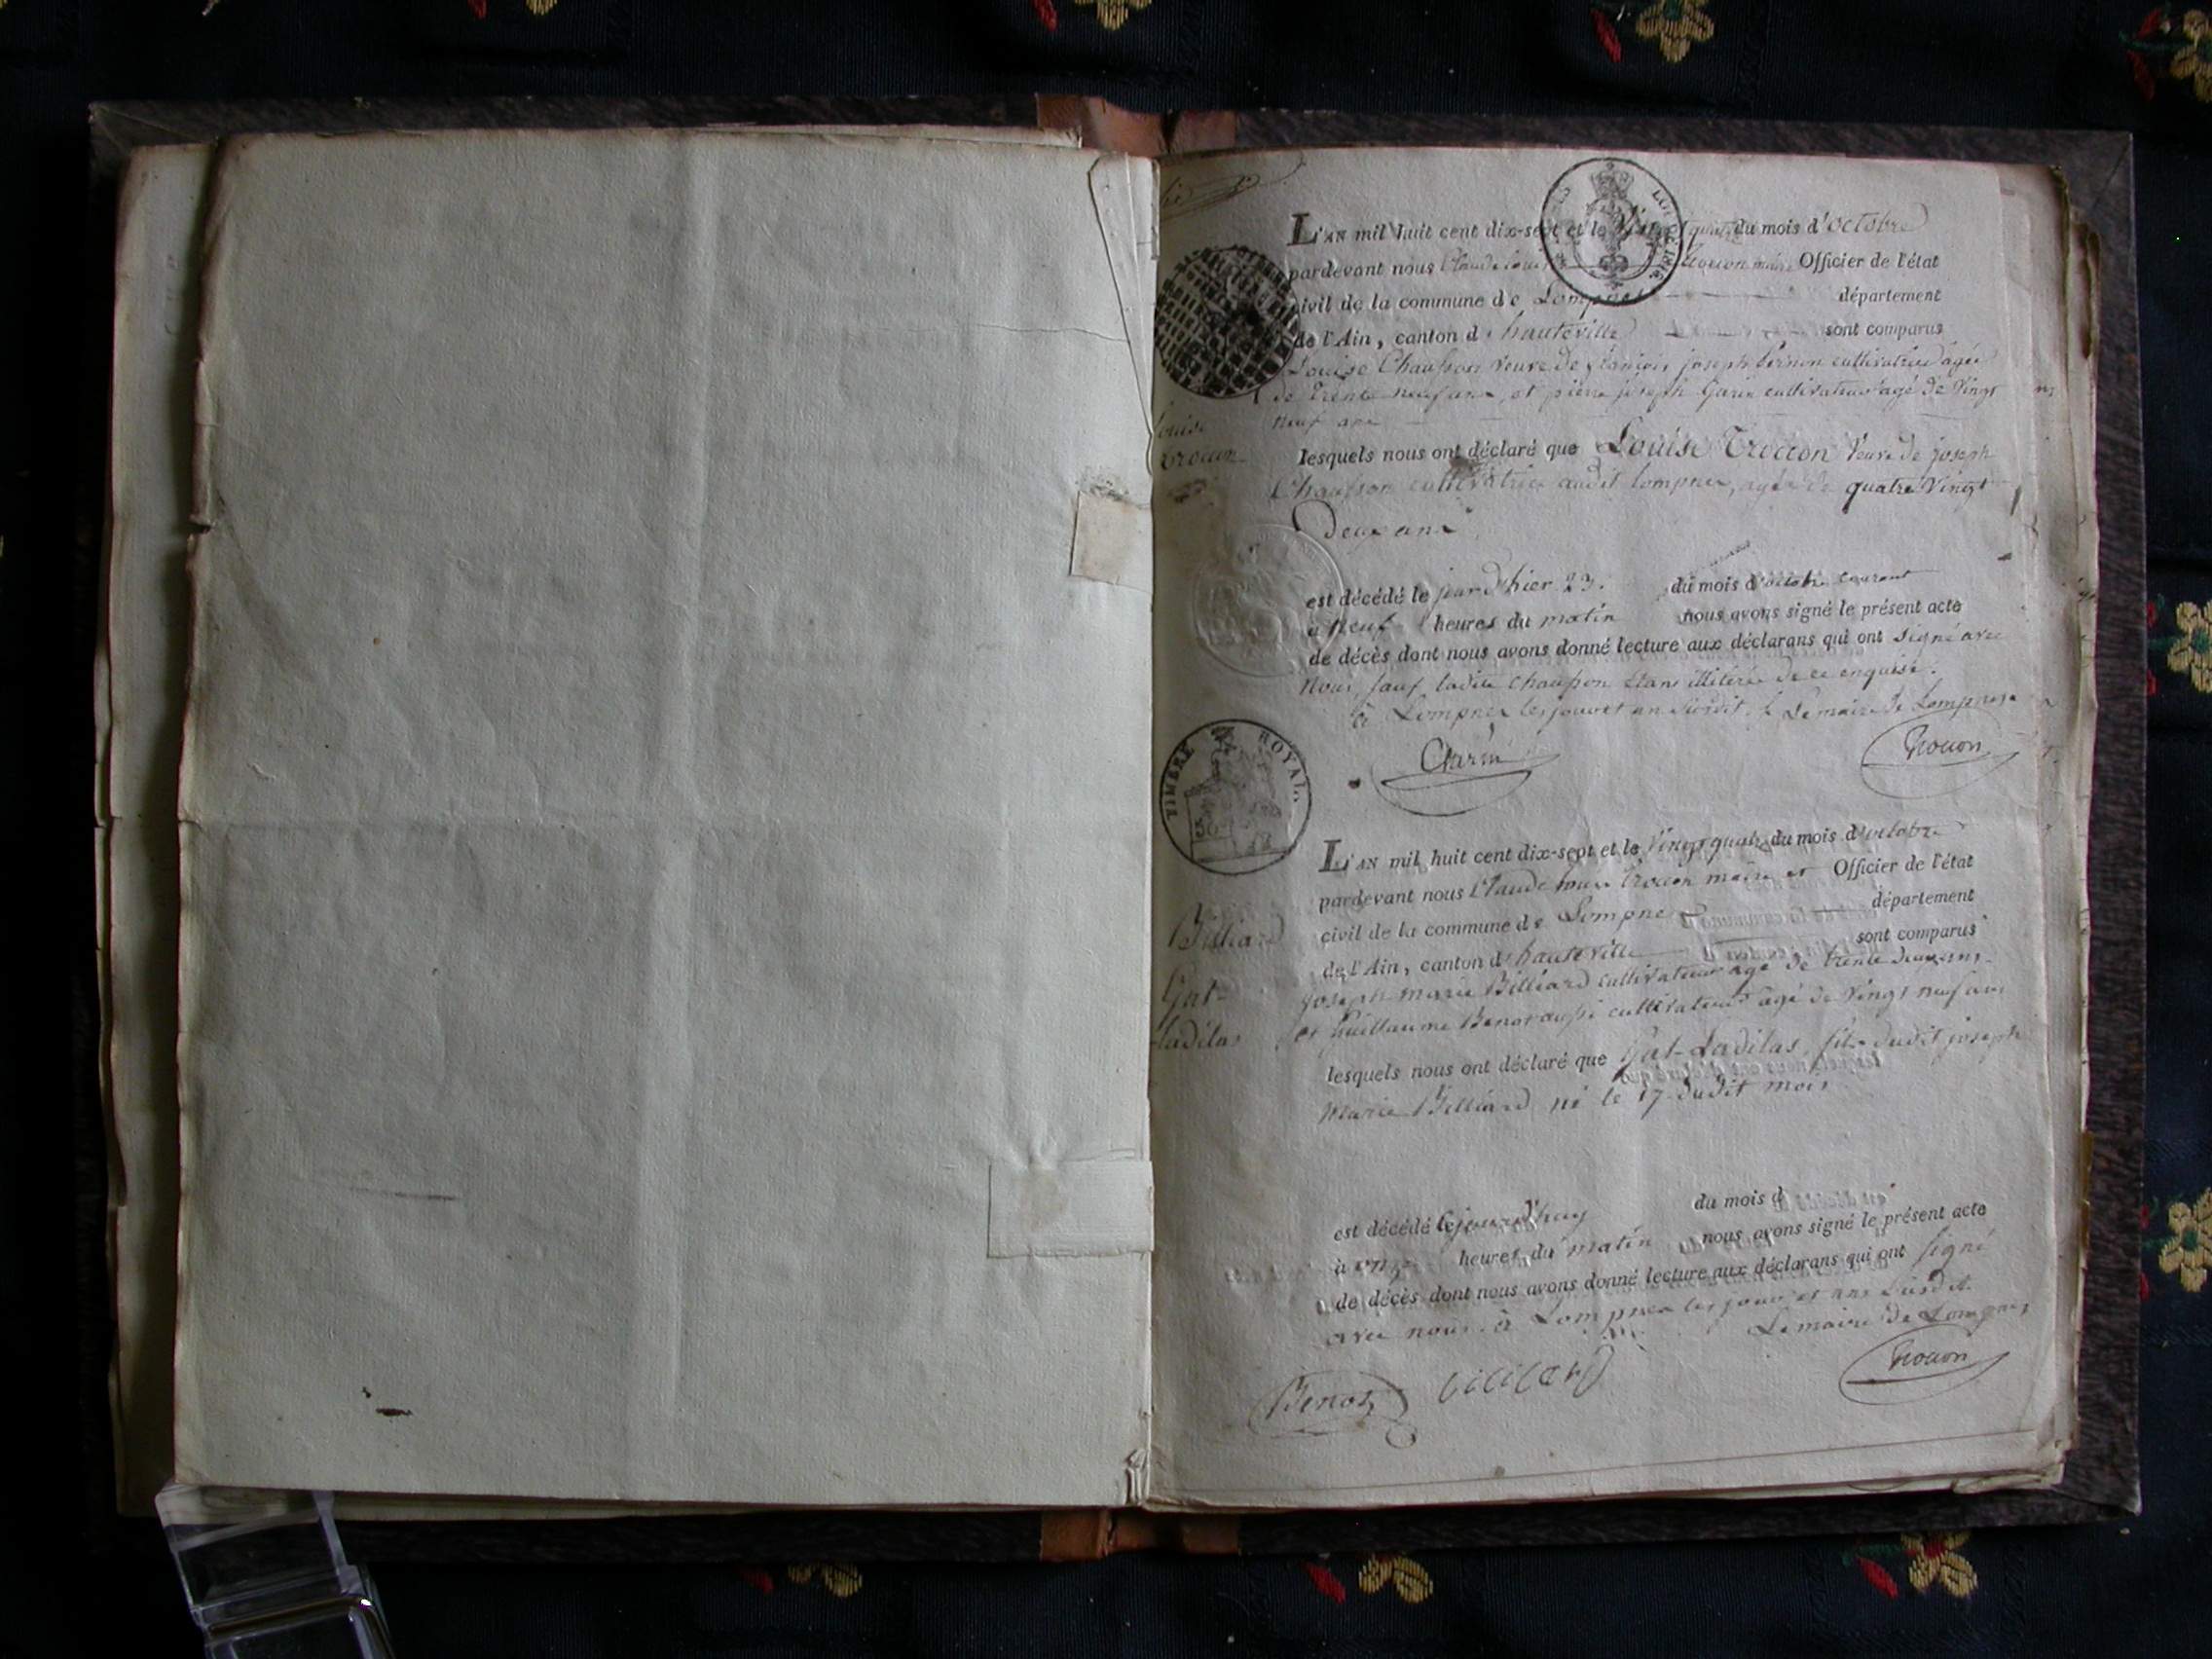 L'AN mil huit cent dix-sept et le Vingt quatre du mois d'octobre
pardevant nous Claude Louis Trocon maire Officier de l'état
civil de la commune de Lompnes département
de l'Ain, canton d'hauteville sont comparus
Louise Chaupon Veuve de françois joseph bernon cultivatrice agée
de trente neuf ans, et pierre joseph Garin cultivateur agé de Vingt
neuf ans
Louise
Trocon
lesquels nous ont déclaré que Louise Trocon Veuve de joseph
Chaupon cultivatrice audit Lompnes, agée de quatre Vingt
Deux ans
est décédé le jour d'hier 23. du mois d'octobre courant
à neuf heures du matin nous avons signé le présent acte
de décès dont nous avons donné lecture aux déclarans qui ont signé avec
Nous, sauf ladite Chaupon illitérée de ce enquise.
à Lompnes les jour et an susdit. Le maire de Lompnes
Garin Trocon
TIMBRE ROYAL
L'AN mil huit cent dix-sept et le Vingt quatre du mois d'octobre
pardevant nous Claude Louis Trocon maire et Officier de l'état
civil de la commune de Lompnes département
de l'Ain, canton d'hauteville sont comparus
joseph marie Billiard cultivateur agé de trente deux ans
et Guillaume Benot aussi cultivateur agé de Vingt neuf ans
Billiard
Gat-
Ladilas
lesquels nous ont déclaré que Gat-Ladilas, fils dudit joseph
Marie Billiard né le 17 dudit mois
est décédé le jourd'huy du mois d
à onze heures du matin nous avons signé le présent acte
de décès dont nous avons donné lecture aux déclarans qui ont signé
avec nous. à Lompnes les jour et an susdit.
Le maire de Lompnes
Benot billiard Trocon